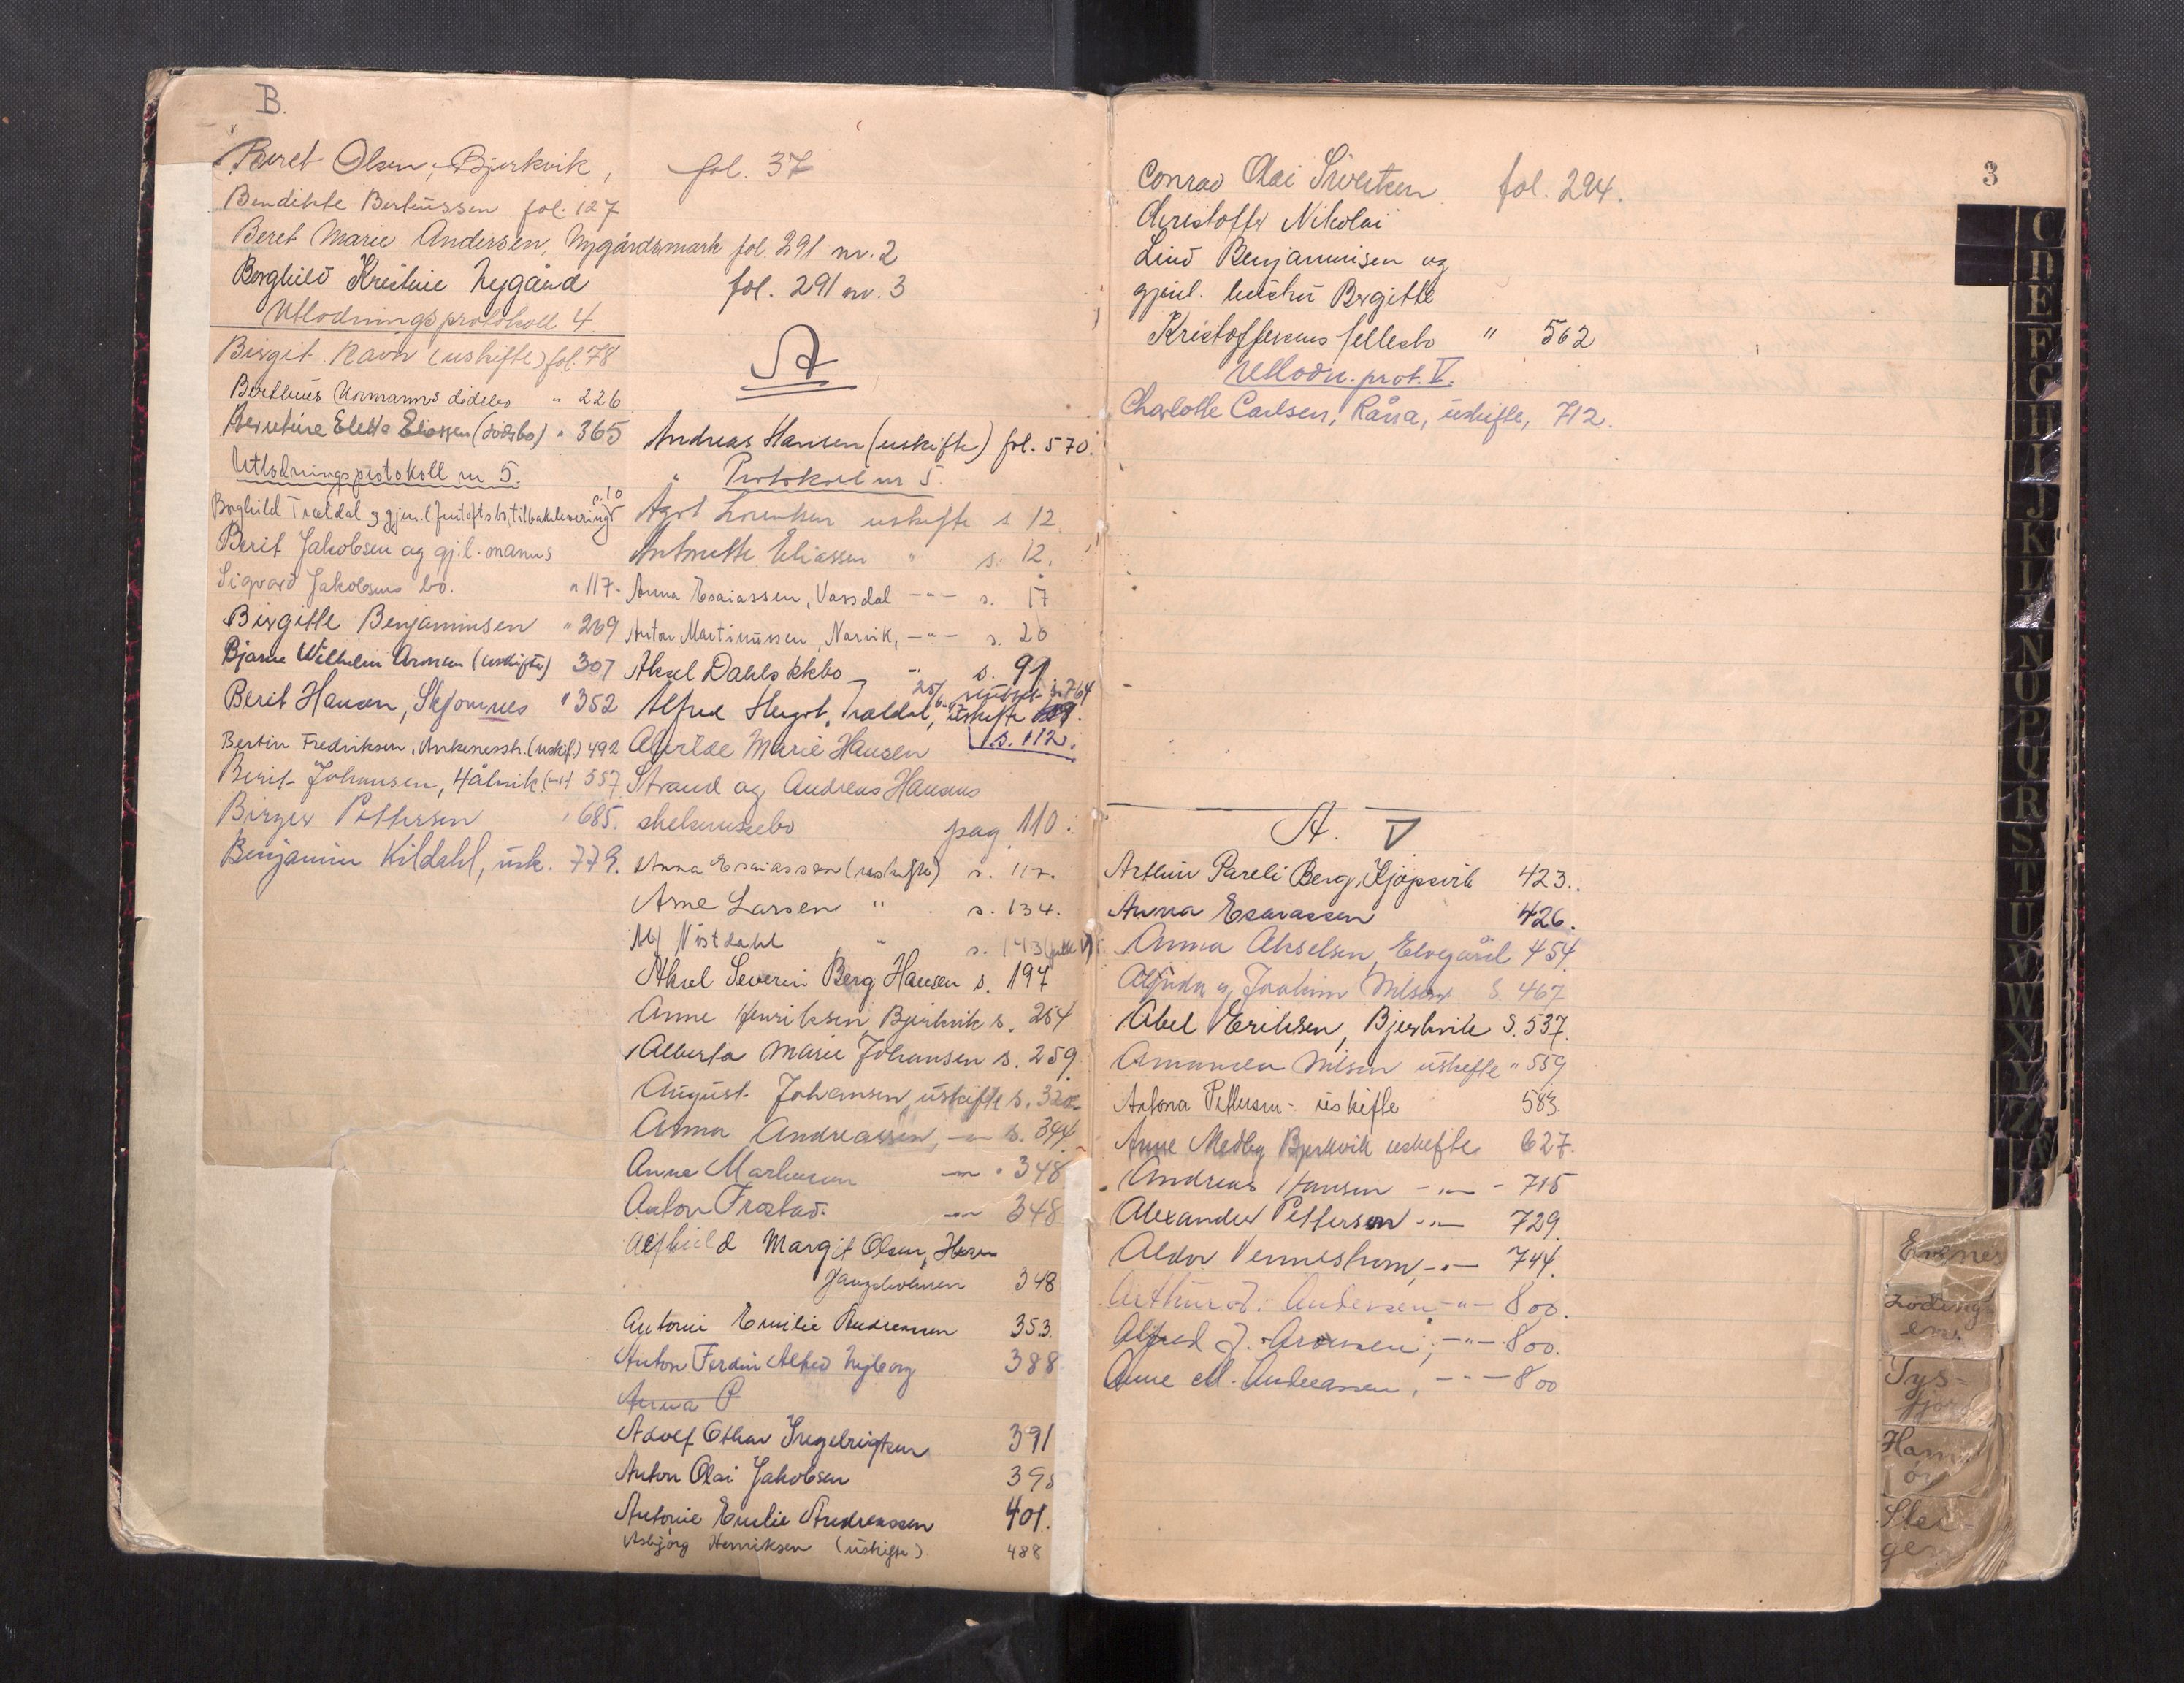 B.
Beret Olsen, Bjerkvik, fol. 37
Bendikte Berteussen fol. 127
Beret Marie Andersen, Nygårdsmark fol. 291 nr. 2
Borghild Kristine Nygård fol. 291 nr. 3
Utlodningsprotokoll 4.
Birgit Ravn (uskifte) fol. 78
Bertheus Normanns dödsbo " 226
Eliassen (dödsbo) " 365
Utlodningsprotokoll nr 5.
Borghild Trældal og gjenl. tilbakelevering s. 10
Berit Jakobsen og gj.l. manns
Sigvard Jakobsens bo. " 117.
Birgitte Benjaminsen " 269
Bjarne Wilhelm Aronsen (uskifte) 307
Berit Hansen, Skjomnes " 352
Bertin Fredriksen, Ankenesstr. (uskif.) 492
Berit Johansen, Håkvik (-"-) 557
Birger Pettersen " 685.
Benjamin Kildahl, usk. 779.
A
Andreas Hansen (uskifte) fol. 570.
Protokoll nr 5.
Agot Lorentsen uskifte s 12
Antonette Eliassen " s. 12.
Anna Esaiassen, Vassdal -"- s. 17
Anton Martinussen, Narvik, -"- s. 20
Aksel Dahls bo " s. 91
Alfred Trældal, uskifte s. 764
s. 112.
Marie Hansen
Strand og Andreas Hansens
pag 110.
Anna Esaiassen (uskifte) s. 117.
Arne Larsen " s. 134.
Alf Nistdahl " s. 143
Aksel Severin Berg Hansen s. 197
Anne Henriksen, Bjerkvik s. 254
Alberta Marie Johansen s. 259.
August Johansen, uskifte s. 320
Anna Andreassen, -"- s. 344
Anna -"- " 348
Anton Frostad. -"- 348
Alfhild Margit Olsen,
348
Antonie Emilie Andreassen 353.
Anton Ferdin Alfred Nyborg 388
Anna P
Adolf Othar Ingebrigtsen 391
Anton Olai Jakobsen 395
Antonie Emilie Andreassen 401.
Asbjörg Henriksen (uskifte) 488
3
Conrad Olai Sivertsen fol. 294.
Christoffer Nikolai
Lind Benjaminsen og
gjenl. hustru Bergitte
Kristoffersens fellesbo " 562
Utlodn. prot. V.
Charlotte Carlsen, Råna, uskifte, 712.
A. V
Arthur Pareli Berg, Kjöpsvik 423.
Anna Esaiassen 426.
Anna Akselsen, Elvegård 454
Alfrida og Joakim Nilsen S. 467
Abel Eriksen, Bjerkvik S. 537.
Amanda Nilsen uskifte " 559
Antona Pettersen - uskifte 583.
Anne Medby Bjerkvik uskifte 627.
Andreas Hansen -"- 715
Alexander Pettersen -"- 729.
Aldor Vennestrøm, -"- 744.
Arthur J. Andersen -"- 800.
Alfred J. Aronsen, -"- 800.
Anne M. Andreassen, -"- 800
C
D
E
F
G
H
I
J
K
L
N
O
P
Q
R
S
T
U
V
W
X
Y
Z
Evenes
Löding-
en.
Tys-
fjord
Ham-
ör
Stei-
gen